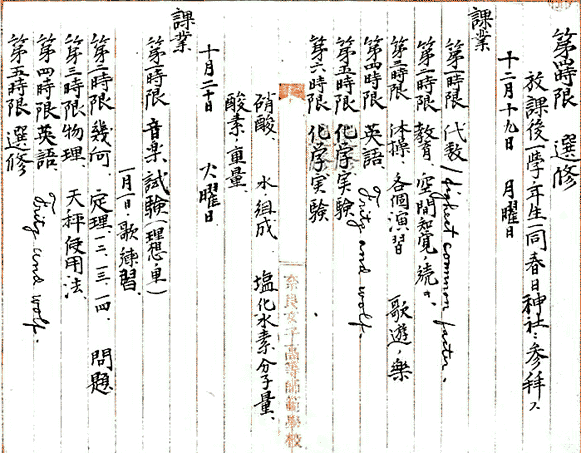 第四時限　選修
放課後一學年生一同春日神社ニ参拜ス
十二月十九日　月曜日
課業
第一時限　代数（highest common factor.
第二時限　教育　空間知覚ノ続キ
第三時限　体操　各個演習　歌遊ノ楽
第四時限　英語　Fritz and wolf.
第五時限　化学実験
第六時限　化学実験
硝酸、水ノ組成　塩化水素ノ分子量、
酸素ノ重量
十二月二十日　火曜日
課業
第一時限　音楽、試験（理想ノ車）
一月一日ノ歌練習、
第二時限　幾何、定理、一二、一三、一四、問題
第三時限　物理　天秤使用法、
第四時限　英語　Fritz and wolf.
第五時限　選修
奈良女子高等師範學校